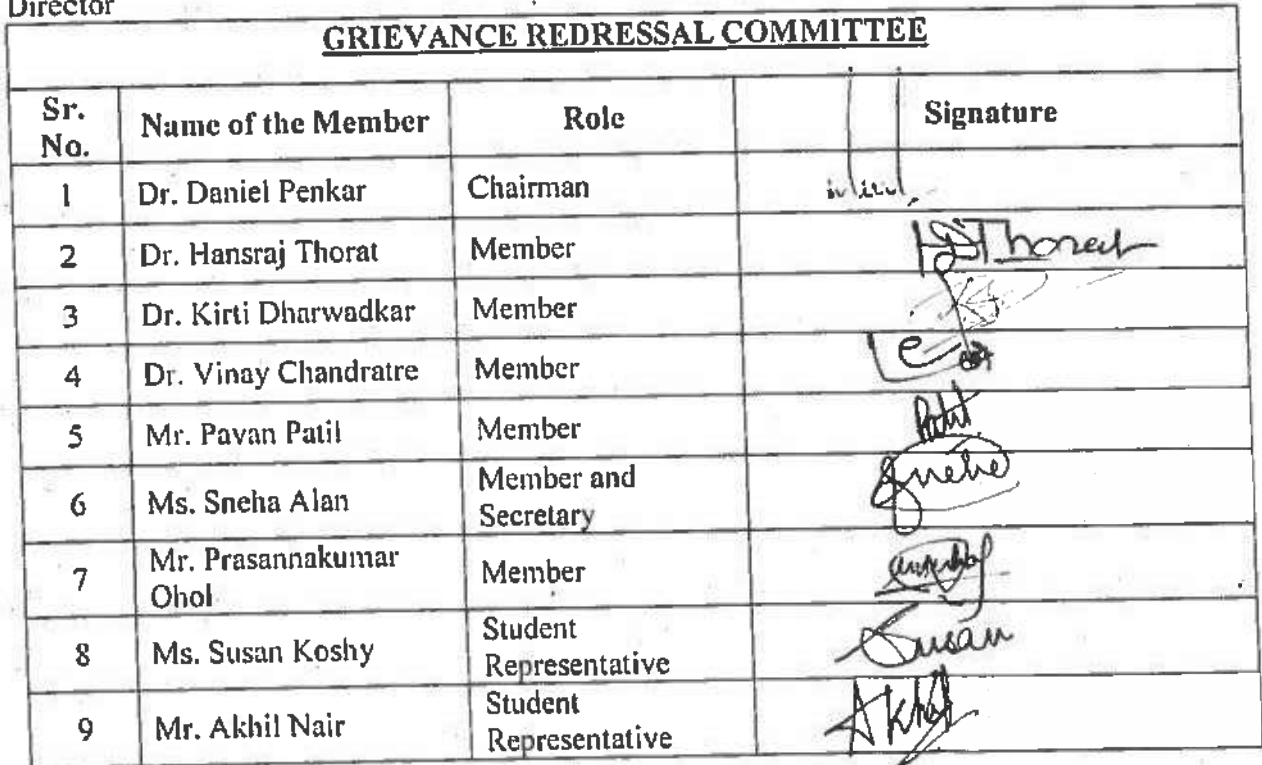 Director
GRIEVANCE REDRESSAL COMMITTEE
Sr. No. Name of the Member Role Signature
1 Dr. Daniel Penkar Chairman
2 Dr. Hansraj Thorat Member HSThorat
3 Dr. Kirti Dharwadkar Member
4 Dr. Vinay Chandratre Member
5 Mr. Pavan Patil Member Patil
6 Ms. Sneha Alan Member and Secretary Sneha
7 Mr. Prasannakumar Ohol Member
8 Ms. Susan Koshy Student Representative Susan
9 Mr. Akhil Nair Student Representative Akhil